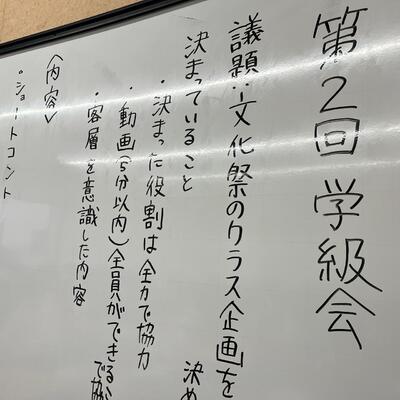 第2回 学級会
議題:文化祭のクラス企画を
決め
決まっていること
・決まった役割は全力で協力
・動画(5分以内)全員ができるこ
で協
・客層を意識した内容
〈内容〉
・ショートコント